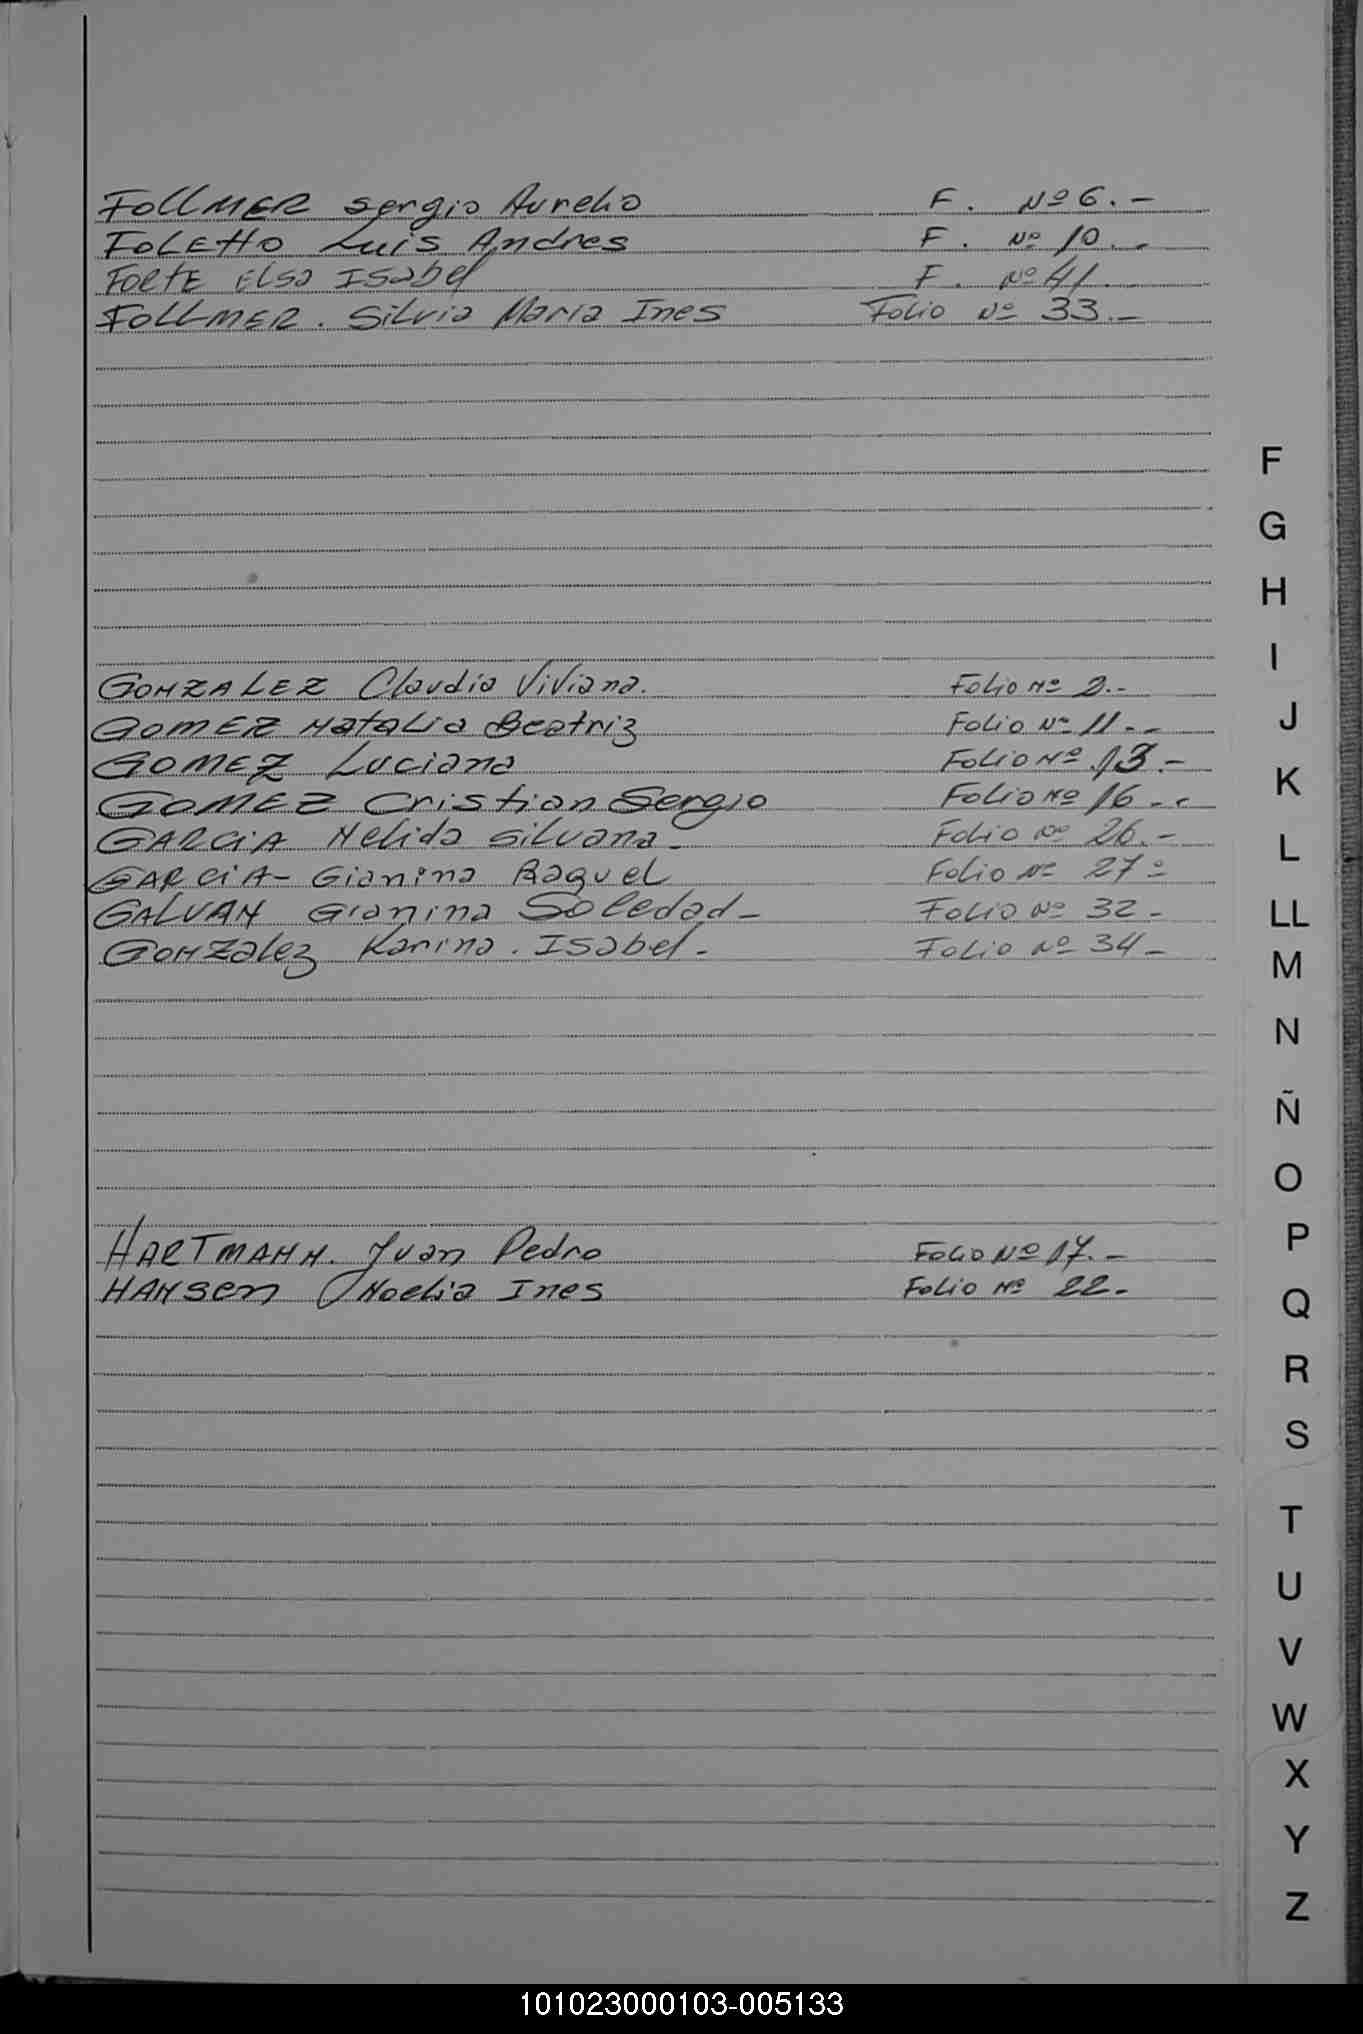 FOLLMER Sergio Aurelio F. Nº 6.-
FOLETTO Luis Andres F. Nº 10.-
FORTE Elsa Isabel F. Nº 41.
FOLLMER. Silvia Maria Ines Folio Nº 33.-
F
G
H
I
GONZALEZ Claudia Viviana. Folio Nº 2.-
J
GOMEZ Natalia Beatriz Folio Nº 11.-
GOMEZ Luciana Folio Nº 13.-
K
GOMEZ Cristian Sergio Folio Nº 16.-
GARCIA Nelida Silvana- Folio Nº 26.-
L
GARCIA- Gianina Raquel Folio Nº 27-
GALVAN Gianina Soledad- Folio Nº 32-
LL
GONZalez Karina. Isabel- Folio Nº 34-
M
N
Ñ
O
P
HARTMANN. Juan Pedro Folio Nº 17.-
HANSen Noelia Ines Folio Nº 22.-
Q
R
S
T
U
V
W
X
Y
Z
101023000103-005133